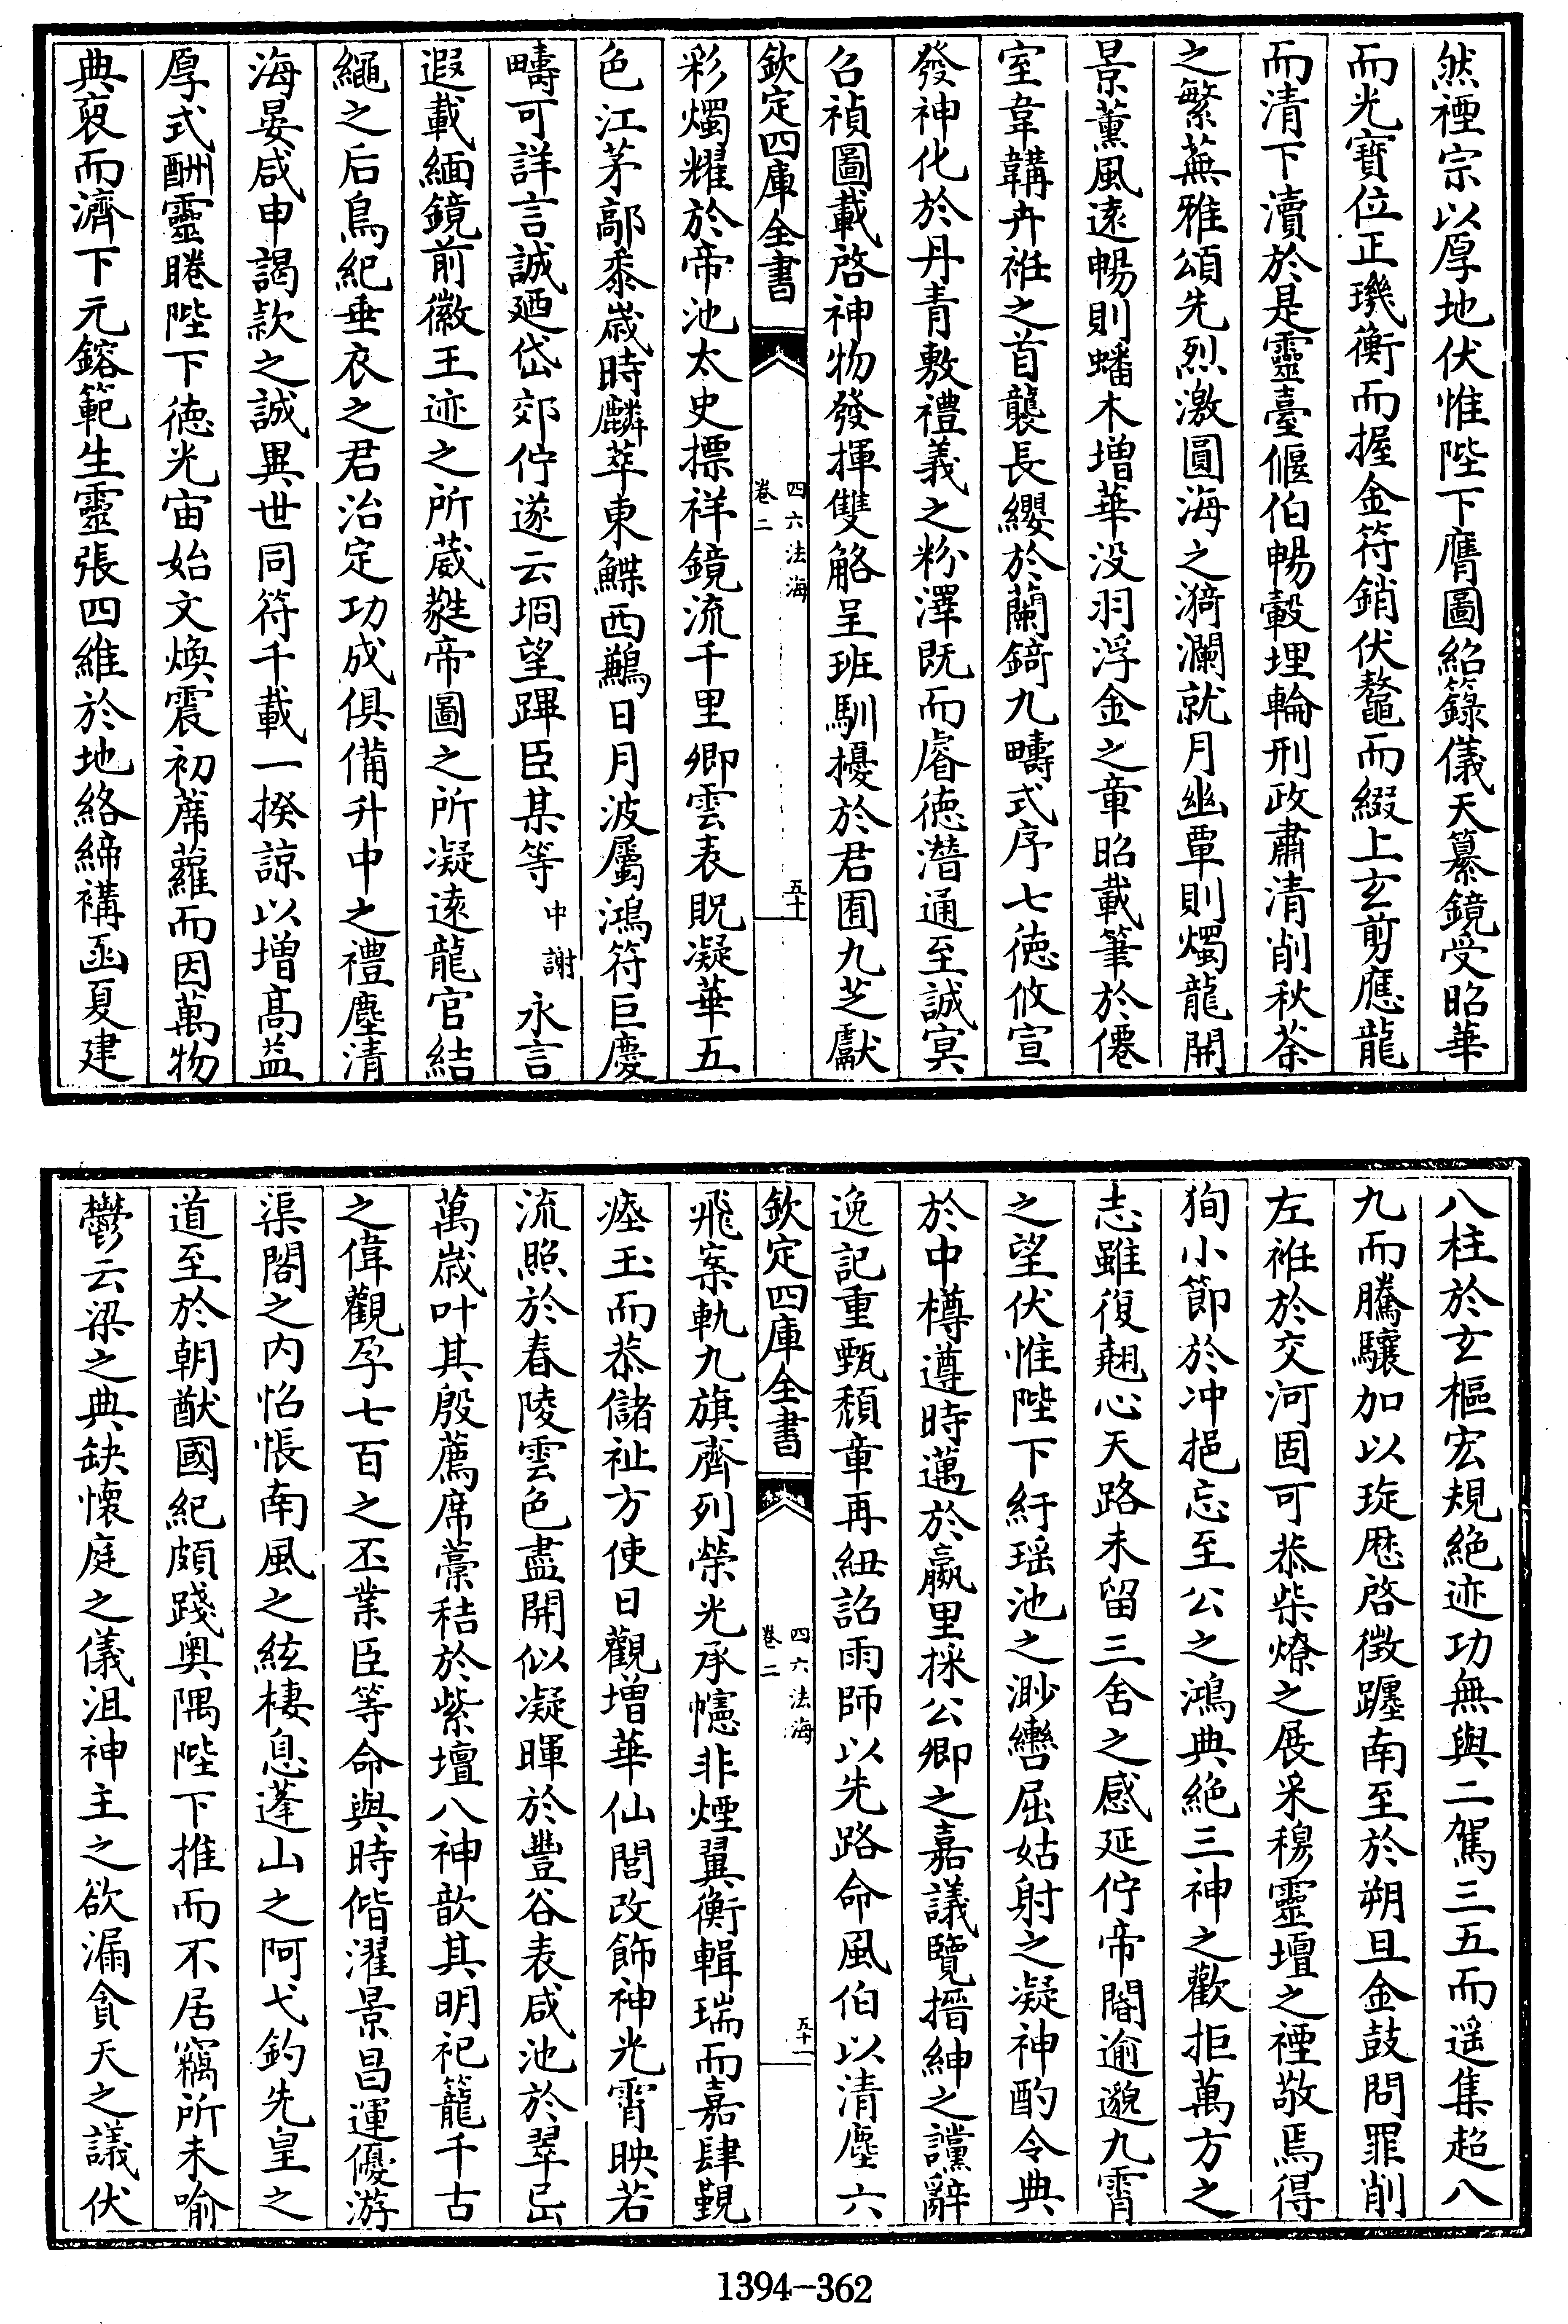 然禋宗以厚地伏惟陛下膺圖紹籙儀天纂鏡受昭華
而光寶位正璣衡而握金符銷伏鼇而綴上玄剪應龍
而清下瀆於是靈臺偃伯暢轂埋輪刑政肅清削秋荼
之繁蕪雅頌先烈激圓海之漪瀾就月幽覃則燭龍開
景薰風逺暢則蟠木増華沒羽浮金之章昭載筆於僊
室韋韝卉袵之首襲長纓於蘭錡九疇式序七徳攸宣
發神化於丹青敷禮義之粉澤既而睿徳潛通至誠寞
召禎圖載啓神物發揮雙觡呈班馴擾於君囿九芝獻
欽定四庫全書
四六法海
卷二
五十
彩燭耀於帝池太史摽祥鏡流千里卿雲表貺凝華五
色江茅鄗黍嵗時麟萃東鰈西鶼日月波屬鴻符巨慶
疇可詳言誠廼岱郊佇遂云坰望蹕臣某等中謝永言
遐載緬鏡前徽王迹之所葳蕤帝圖之所凝逺龍官結
繩之后鳥紀垂衣之君治定功成俱備升中之禮塵清
海晏咸申謁欵之誠異世同符千載一揆諒以増髙益
厚式酬靈睠陛下徳光宙始文煥震初席蘿而因萬物
典裒而濟下元鎔範生靈張四維於地絡締褠函夏建
八柱於玄樞宏規絶迹功無與二駕三五而遥集超八
九而騰驤加以琁厯啓徴躔南至於朔旦金鼓問罪削
左袵於交河固可恭柴燎之展采穆靈壇之禋敬焉得
狥小節於冲挹忘至公之鴻典絶三神之歡拒萬方之
志雖復翹心天路未留三舍之感延佇帝閽逾邈九霄
之望伏惟陛下紆瑶池之渺轡屈姑射之凝神酌令典
於中樽遵時邁於嬴里採公卿之嘉議覽搢紳之讜辭
逸記重甄頹章再紐詔雨師以先路命風伯以清塵六
欽定四庫全書
四六法海
卷二
五十一
飛案軌九旗齊列榮光承幰非煙翼衡輯瑞而嘉肆覲
瘞玉而恭儲祉方使日觀増華仙閭改飾神光霄映若
流照於春陵雲色晝開似凝暉於豐谷表咸池於翠岊
萬嵗叶其殷薦席藳秸於紫壇八神歆其明祀籠千古
之偉觀孕七百之丕業臣等命與時偕濯景昌運優游
渠閣之内怊悵南風之絃棲息蓬山之阿弋釣先皇之
道至於朝猷國紀頗踐奥隅陛下推而不居竊所未喻
鬱云梁之典缺懷庭之儀沮神主之欲漏貪天之議伏
1394-362